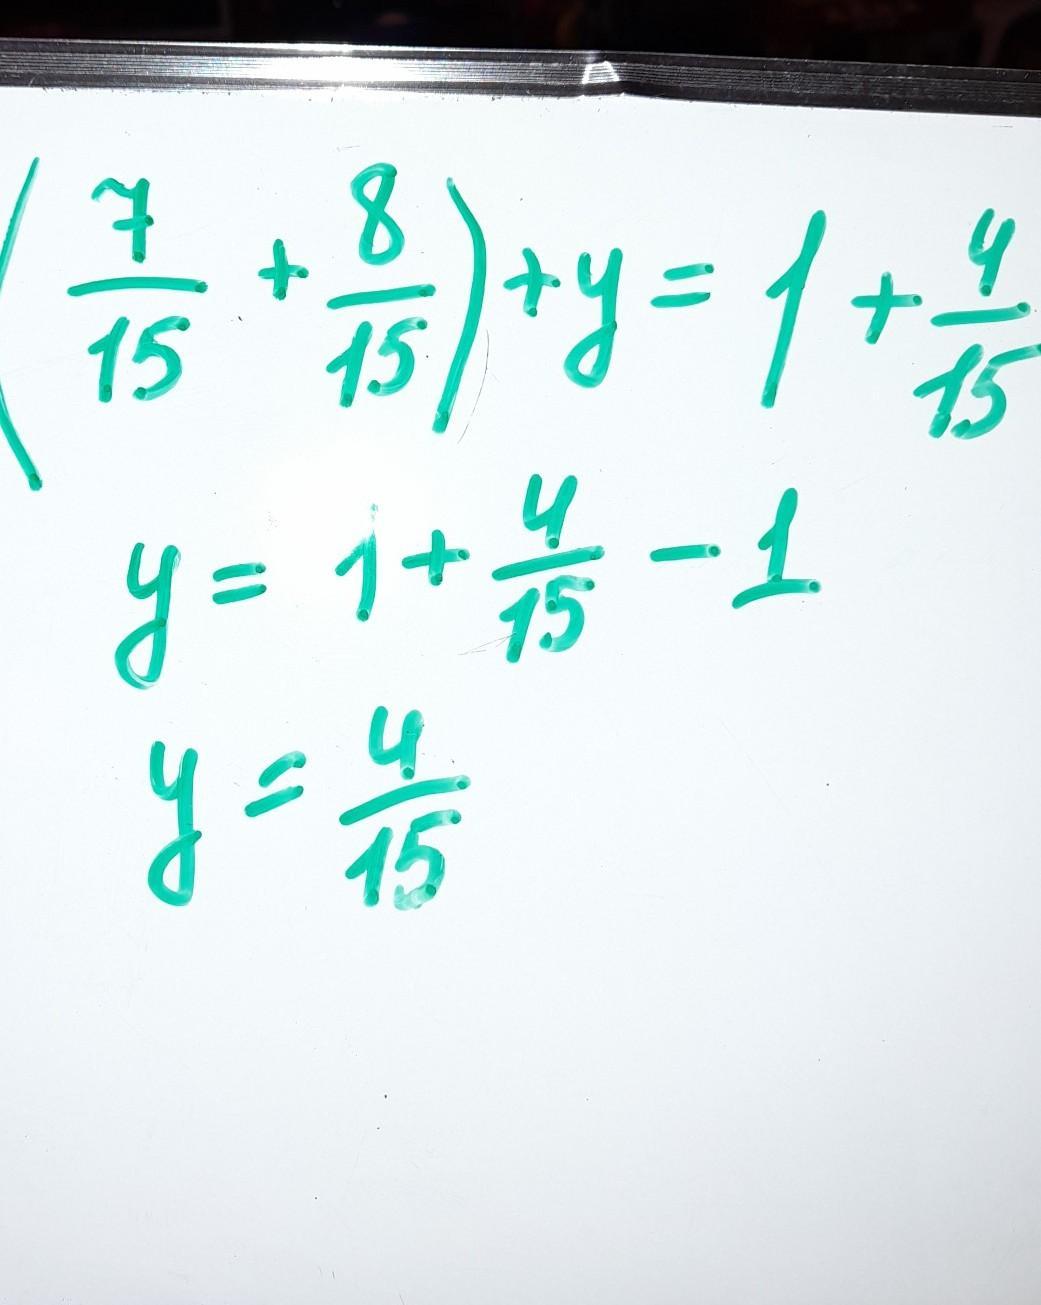 (7/15 + 8/15) + y = 1 + 4/15
y = 1 + 4/15 - 1
y = 4/15